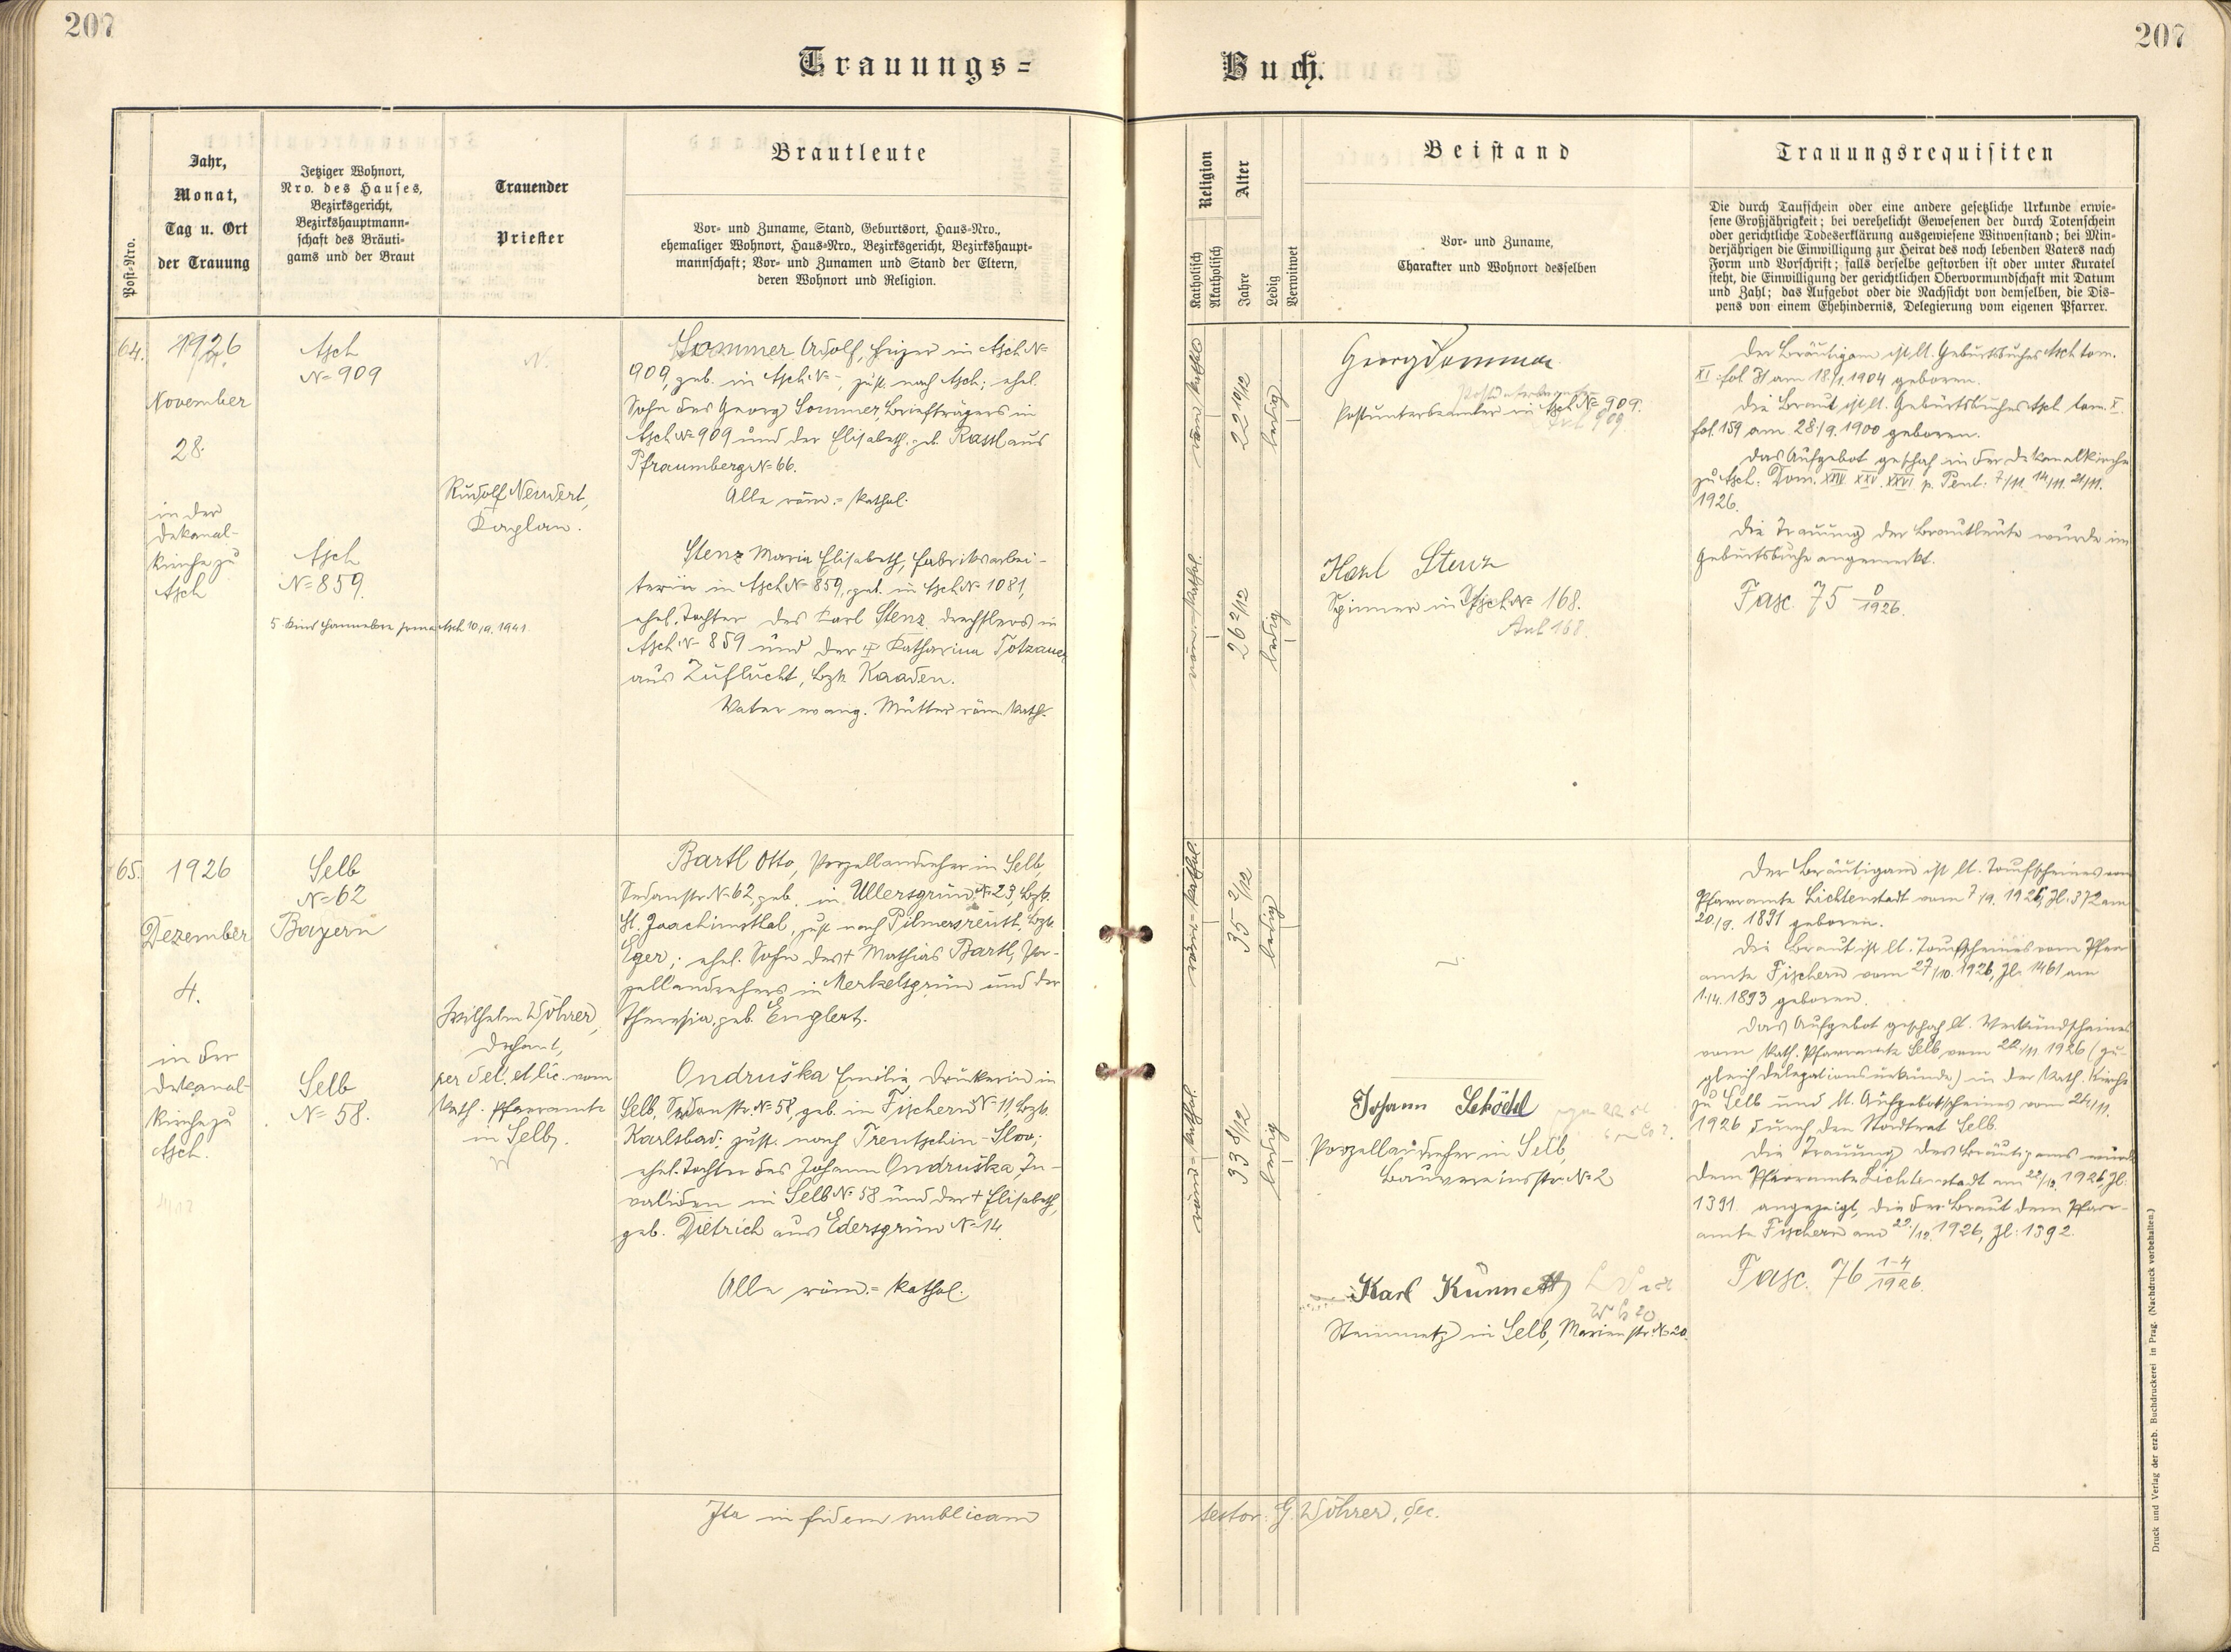 207
207
Trauungs=
Buch.
Post-Nro.
Jahr,
Monat,
Tag u. Ort
der Trauung
Jetziger Wohnort,
Nro. des Hauses,
Bezirksgericht,
Bezirkshauptmann=
schaft des Bräuti=
gams und der Braut
Trauender
Priester
Brautleute
Vor- und Zuname, Stand, Geburtsort, Haus=Nro.,
ehemaliger Wohnort, Haus=Nro., Bezirksgericht, Bezirkshaupt=
mannschaft; Vor- und Zunamen und Stand der Eltern,
deren Wohnort und Religion.
Religion
Katholisch
Akatholisch
Alter
Jahre
Ledig
Verwitwet
Beistand
Vor- und Zuname,
Charakter und Wohnort desselben
Trauungsrequisiten
Die durch Taufschein oder eine andere gesetzliche Urkunde erwie=
sene Großjährigkeit; bei verehelicht Gewesenen der durch Totenschein
oder gerichtliche Todeserklärung ausgewiesene Witwenstand; bei Min=
derjährigen die Einwilligung zur Heirat des noch lebenden Vaters nach
Form und Vorschrift; falls derselbe gestorben ist oder unter Kuratel
steht, die Einwilligung der gerichtlichen Obervormundschaft mit Datum
und Zahl; das Aufgebot oder die Nachsicht von demselben, die Dis=
pens von einem Ehehindernis, Delegierung vom eigenen Pfarrer.
64.
1926
November
28.
in der
Dekanal-
kirche zu
Asch
Asch
N= 909
Asch
N= 859.
5. Kind Hannelore Irma Asch 10/9. 1941
N.
Rudolf Neudert,
Kaplan.
Sommer Adolf, Heizer in Asch N=
909, geb. in Asch N= -, zust. nach Asch; ehel.
Sohn des Georg Sommer, Briefträgers in
Asch N= 909 und der Elisabeth, geb. Rassl aus
Pfraumberg N= 66.
Alle röm.= kathol.
Stenz Maria Elisabeth, Fabriksarbei-
terin in Asch N= 859, geb. in Asch N= 1081,
ehel. Tochter des Karl Stenz, Drechslers in
Asch N= 859 und der Katharina Totzauer
aus Zuflucht, Bzk Kaaden.
Vater evang. Mutter röm. kath.
römisch-katholisch
22 10/12
ledig
26 2/12
ledig
Georg Sommer
Postunterbeamter in Asch N= 909.
Karl Stenz
Spinner in Asch N= 168.
Der Bräutigam ist lt. Geburtsbuches Asch tom.
XI. fol 31 am 18./1. 1904 geboren.
Die Braut ist lt. Geburtsbuches Asch tom. X.
fol. 159 am 28./9. 1900 geboren.
Das Aufgebot geschah in der Dekanalkirche
zu Asch: Dom. XXIV. XXV. XXVI p. Pent: 7/11. 14/11. 21/11.
1926.
Die Trauung der Brautleute wurde im
Geburtsbuche angemerkt.
Fasc. 75 0/1926.
65.
1926
Dezember
4.
in der
Dekanal-
kirche zu
Asch.
Selb
N= 62
Bayern
Selb
N= 58.
Wilhelm Wöhrer,
Dechant,
per del. et lic. vom
kath. Pfarramte
in Selb.
Bartl Otto, Porzellandreher in Selb,
Sedanstr. N= 62, geb. in Ullersgrün N= 23, Bzk.
St. Joachimsthal, zust. nach Pilmersreuth, Bzk.
Eger; ehel. Sohn des † Mathias Bartl, Por-
zellandrehers in Merkelsgrün und der
Theresia, geb. Englert.
Ondruška Emilie, Druckerin in
Selb, Sedanstr. N= 58, geb. in Fischern N= 11, Bzk.
Karlsbad; zust. nach Trentschin-Slov.;
ehel. Tochter des Johann Ondruška, In-
validen in Selb N= 58 und der † Elisabeth,
geb. Dietrich aus Edersgrün N= 14.
Alle röm.= kathol.
römisch=kathol.
35 2/12
ledig
33 8/12
ledig
Johann Schödel
Porzellandreher in Selb,
Bauvereinsstr. N= 2
Karl Künneth
Steinmetz in Selb, Marienstr. N= 20.
Der Bräutigam ist lt. Taufscheines vom
Pfarramte Lichtenstadt vom 7./9. 1926, Zl. 372 am
20./9. 1891 geboren.
Die Braut ist lt. Taufscheines vom Pfarr-
amte Fischern vom 27/10. 1926, Zl. 1461 am
1./4. 1893 geboren.
Das Aufgebot geschah lt. Verkündscheines
vom kath. Pfarramte Selb vom 22./11. 1926 (zu-
gleich Delegationsurkunde) in der kath. Kirche
zu Selb und lt. Aufgebotscheines vom 24/11.
1926 durch den Stadtrat Selb.
Die Trauung des Bräutigams wurde
dem Pfarramte Lichtenstadt am 22/12. 1926, Zl.
1391. angezeigt, die der Braut dem Pfarr-
amte Fischern am 22./12. 1926, Zl. 1392.
Fasc. 76 1-4/1926.
Ita in fidem publicam
testor: G. Wöhrer, dec.
Druck und Verlag der erzb. Buchdruckerei in Prag. (Nachdruck vorbehalten.)